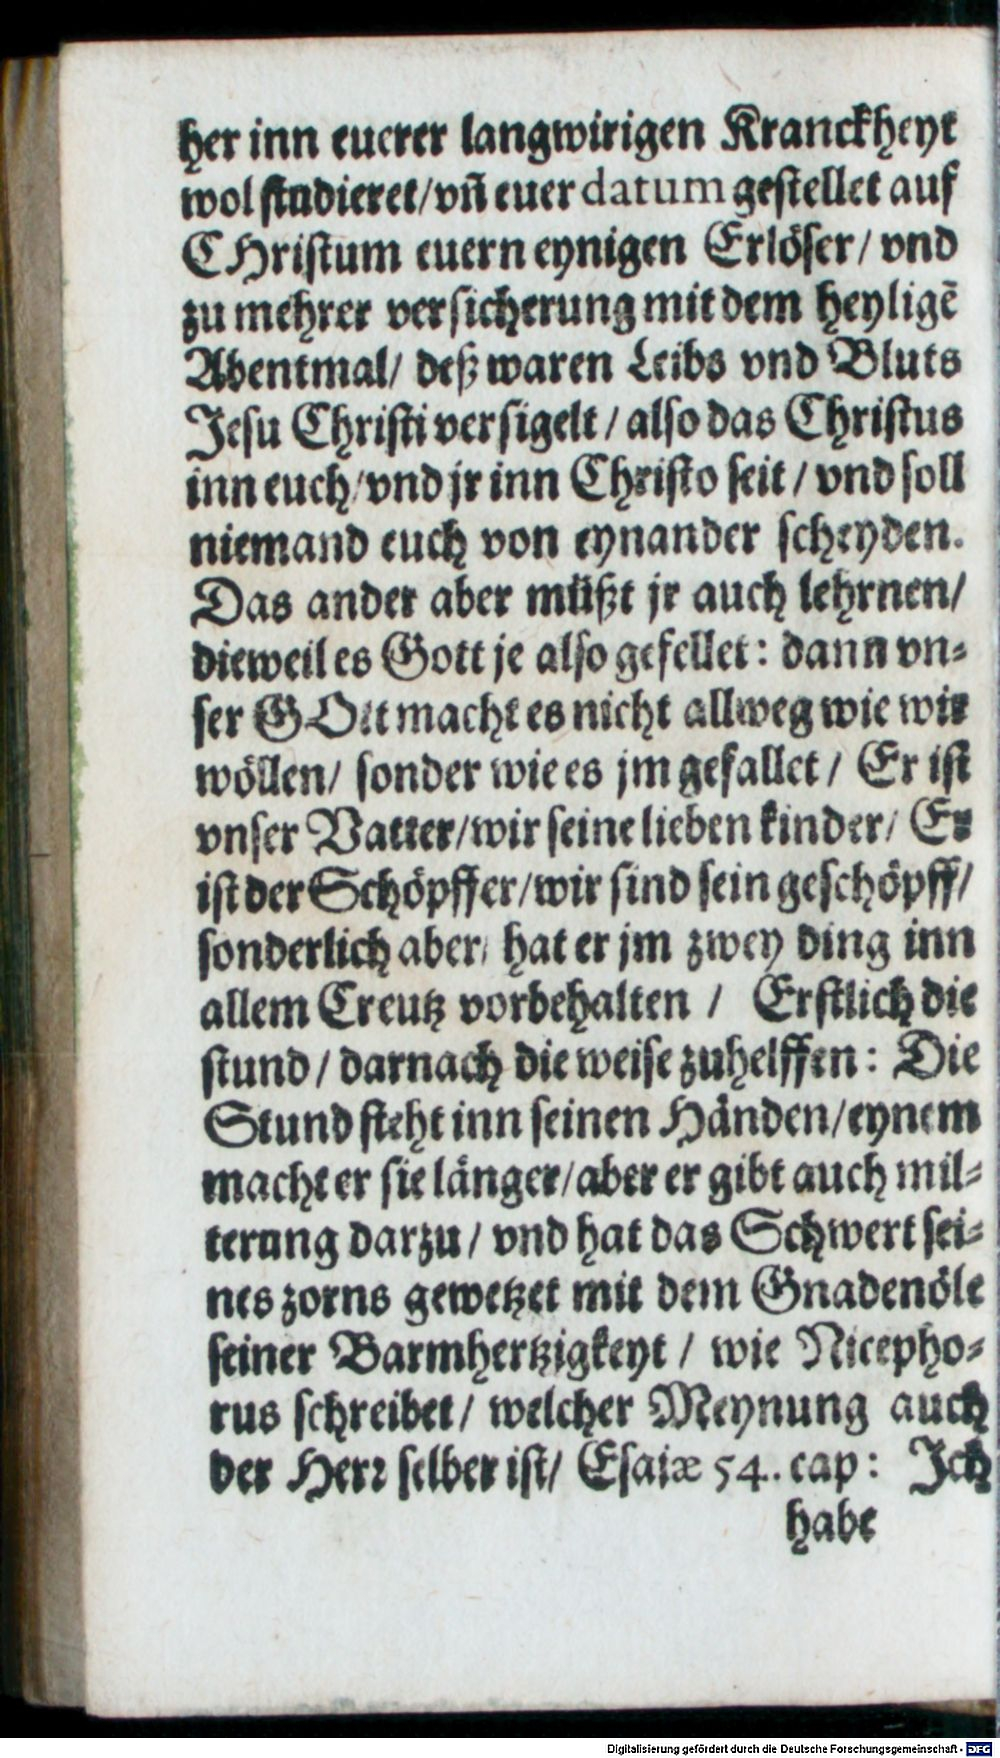 her inn euerer langwirigen Kranckheyt
wol studieret/vñ euer datum gestellet auf
CHristum euern eynigen Erlöser/ vnd
zu mehrer versicherung mit dem heyligē
Abentmal/ deß waren Leibs vnd Bluts
Jesu Christi versigelt/ also das Christus
inn euch/vnd jr inn Christo seit/ vnd soll
niemand euch von eynander scheyden.
Das ander aber müßt jr auch lehrnen/
dieweil es Gott je also gefellet: dann vn-
ser GOtt macht es nicht allweg wie wir
wöllen/ sonder wie es jm gefallet/ Er ist
vnser Vatter/wir seine lieben kinder/ Er
ist der Schöpffer/wir sind sein geschöpff/
sonderlich aber/ hat er jm zwey ding inn
allem Creutz vorbehalten / Erstlich die
stund/ darnach die weise zuhelffen: Die
Stund steht inn seinen Händen/eynem
macht er sie länger/aber er gibt auch mil-
terung darzu/ vnd hat das Schwert sei-
nes zorns gewetzet mit dem Gnadenöle
seiner Barmhertzigkeyt / wie Nicepho-
rus schreibet/ welcher Meynung auch
der Herr selber ist/ Esaiæ 54. cap: Ich
habe
Digitalisierung gefördert durch die Deutsche Forschungsgemeinschaft - DFG